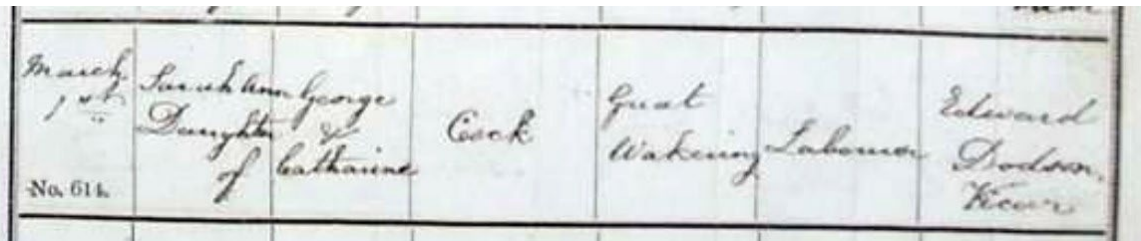 March
1st
No. 614.
Sarah Ann
Daughter
of
George
&
Catharine
Cock
Great
Wakering
Labourer
Edward
Dodson,
Vicar